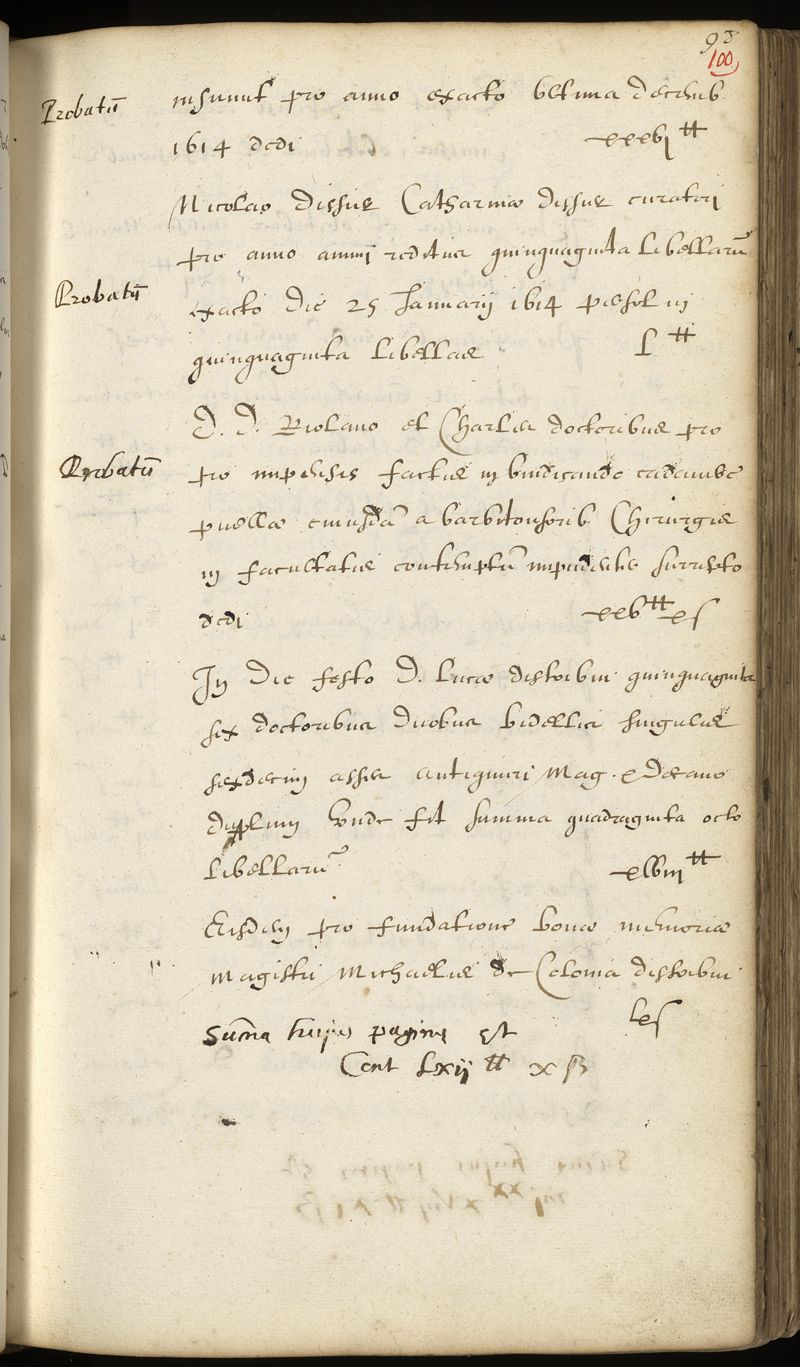 93
100
Probatū insunt pro anno exacto ultima decemb.
1614 dedi xxxvj ⧺
Nicolao Dissue Catharinæ Dissue curatori
pro anno annui reditus quinquaginta libellarū
Probatū exacto die 25 Januarij 1614 persolui
quinquaginta libellas L ⧺
D. D. Riolano et Charles doctoribus pro
Probatū pro impensis factis in vindicando cadauere
puellæ cuiusdā a barbitonsorib. Chirurgis
in facultatis contemptū impudenter surrepto
dedi xxv ⧺ x s
In die festo D. Lucæ distribui quinquaginta
sex doctoribus duobus bidellis singulis
sexdecim asses antiquiori Mag. & Decano
duplum unde fit summa quadraginta octo
libellarū xlviij ⧺
Eisdem pro fundatione bonæ memoriæ
Magistri Michaelis de Colonia distribui
lx s
Sum̄a huius paginæ est
Cent Lxij ⧺ x ß